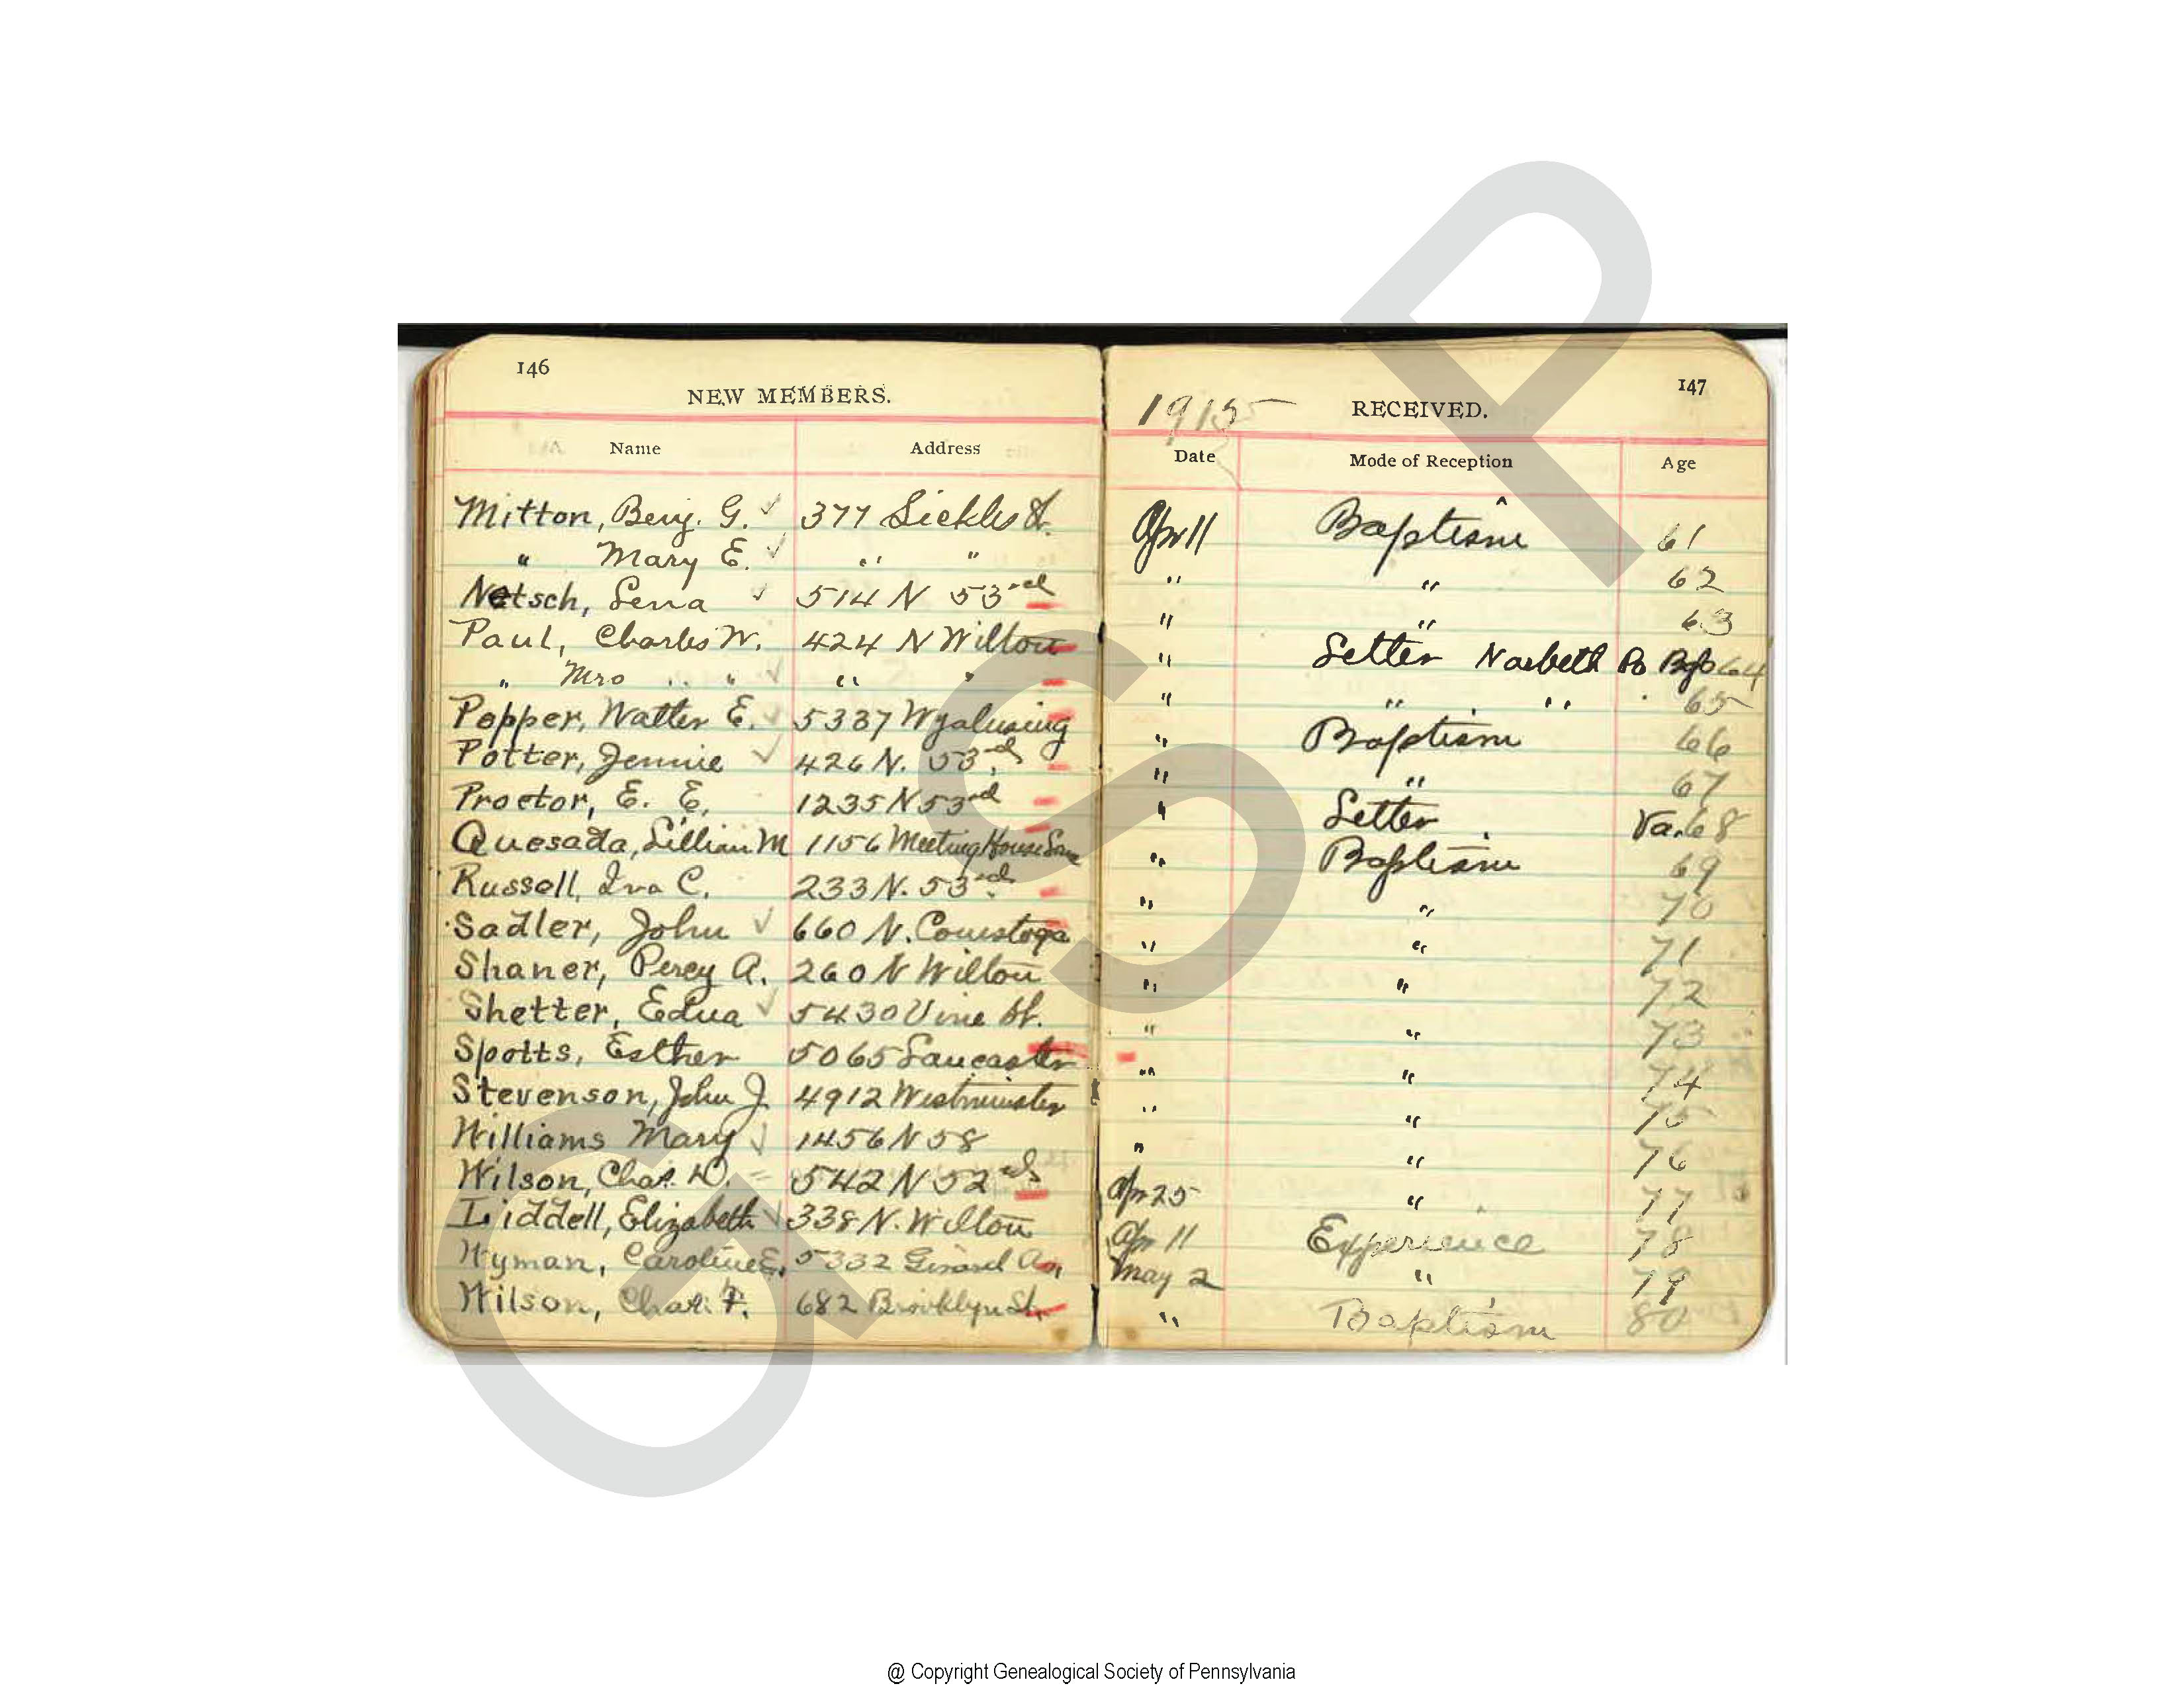 146
NEW MEMBERS.
Name Address
Mitton, Benj. G. ✓ 377 Sickles St.
" Mary E. ✓ " "
Netsch, Lena ✓ 514 N 53rd
Paul, Charles W. 424 N Wilton
" Mrs " " ✓ " "
Popper, Walter E. ✓ 5337 Wyalusing
Potter, Jennie ✓ 426 N. 53rd
Proctor, E. E. 1235 N 53rd
Quesada, Lillian M 1156 Meeting House Lane
Russell, Iva C. 233 N. 53rd
Sadler, John ✓ 660 N. Conestoga
Shaner, Percy A. 260 N Wilton
Shetter, Edna ✓ 5430 Vine St.
Spotts, Esther 5065 Lancaster
Stevenson, John J. 4912 Westminster
Williams Mary ✓ 1456 N 58
Wilson, Chas. D. 542 N 52nd
Liddell, Elizabeth ✓ 338 N. Wilton
Wyman, Caroline E. 5332 Girard Av,
Wilson, Chas. F. 682 Brooklyn St.
147
1915 RECEIVED.
Date Mode of Reception Age
Apr 11 Baptism 61
" " 62
" " 63
" Letter Narbeth Pa 64
" " " 65
" Baptism 66
" " 67
" Letter Va. 68
" Baptism 69
" " 70
" " 71
" " 72
" " 73
" " 74
" " 75
" " 76
Apr 25 " 77
Apr 11 Experience 78
May 2 " 79
" Baptism 80
GSP
@ Copyright Genealogical Society of Pennsylvania